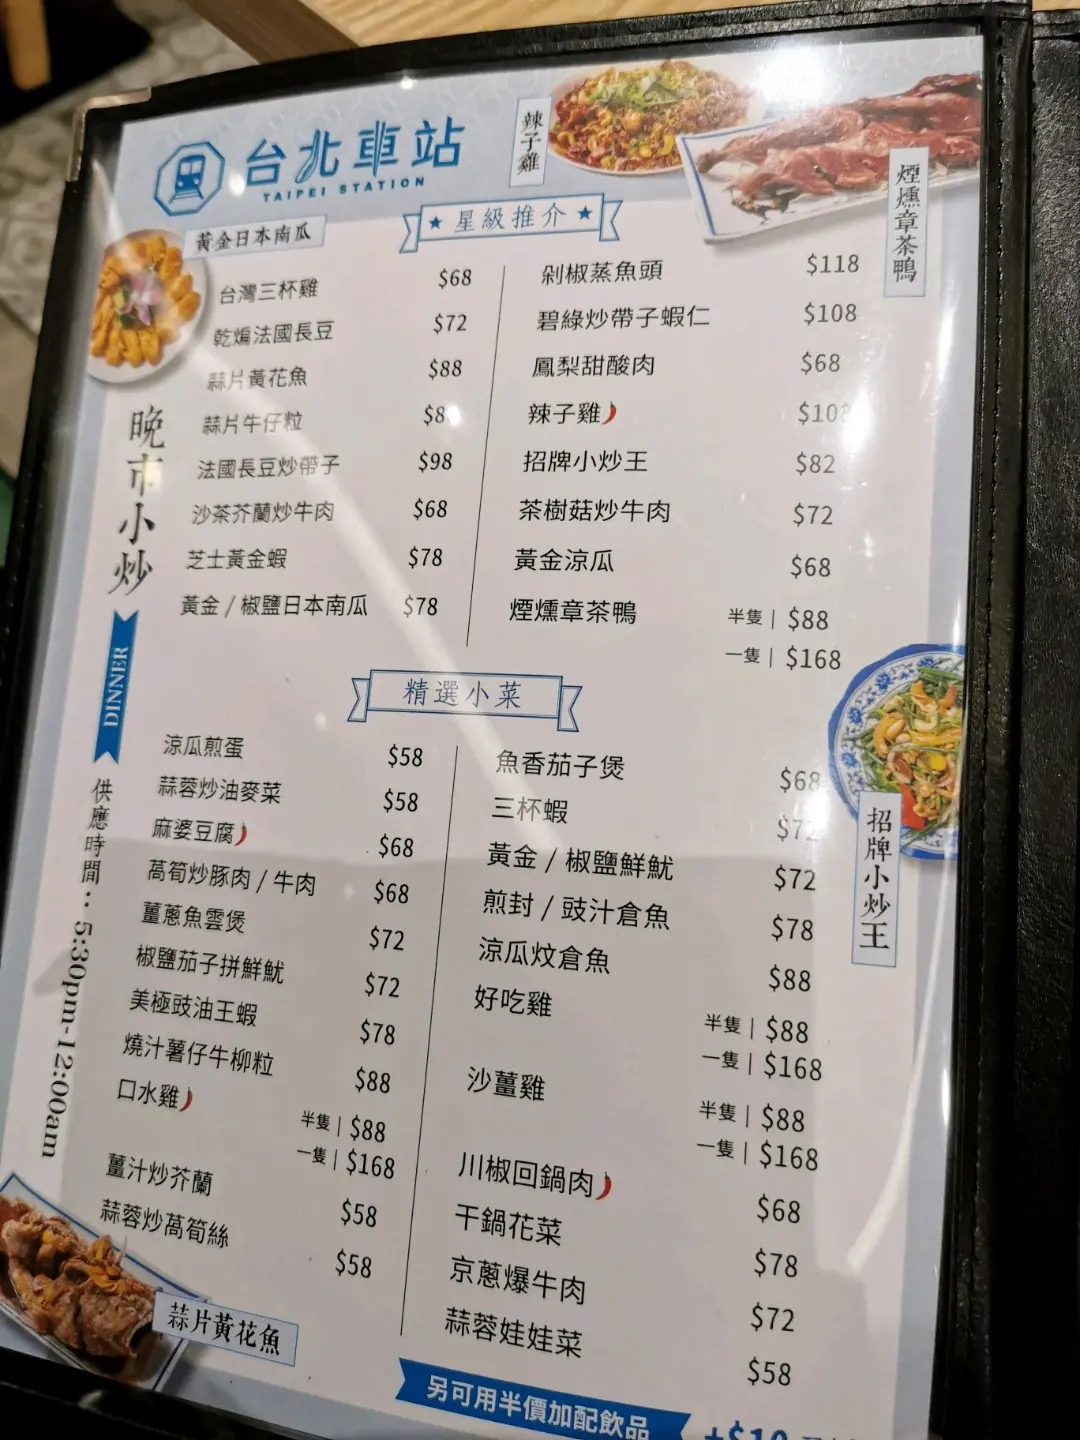 台北車站
TAIPEI STATION
辣子雞
煙燻章茶鴨
黃金日本南瓜
星級推介
台灣三杯雞 $68
乾煸法國長豆 $72
蒜片黃花魚 $88
蒜片牛仔粒
法國長豆炒帶子 $98
沙茶芥蘭炒牛肉 $68
芝士黃金蝦 $78
黃金 / 椒鹽日本南瓜 $78
剁椒蒸魚頭 $118
碧綠炒帶子蝦仁 $108
鳳梨甜酸肉 $68
辣子雞 $108
招牌小炒王 $82
茶樹菇炒牛肉 $72
黃金涼瓜 $68
煙燻章茶鴨 半隻 | $88
一隻 | $168
晚市小炒
DINNER
供應時間：5:30pm-12:00am
精選小菜
涼瓜煎蛋 $58
蒜蓉炒油麥菜 $58
麻婆豆腐 $68
萵筍炒豚肉 / 牛肉 $68
薑蔥魚雲煲 $72
椒鹽茄子拼鮮魷 $72
美極豉油王蝦 $78
燒汁薯仔牛柳粒 $88
口水雞 半隻 | $88
一隻 | $168
薑汁炒芥蘭 $58
蒜蓉炒萵筍絲 $58
魚香茄子煲 $68
三杯蝦 $72
黃金 / 椒鹽鮮魷 $72
煎封 / 豉汁倉魚 $78
涼瓜炆倉魚 $88
好吃雞 半隻 | $88
一隻 | $168
沙薑雞 半隻 | $88
一隻 | $168
川椒回鍋肉 $68
干鍋花菜 $78
京蔥爆牛肉 $72
蒜蓉娃娃菜 $58
招牌小炒王
蒜片黃花魚
另可用半價加配飲品
+$10